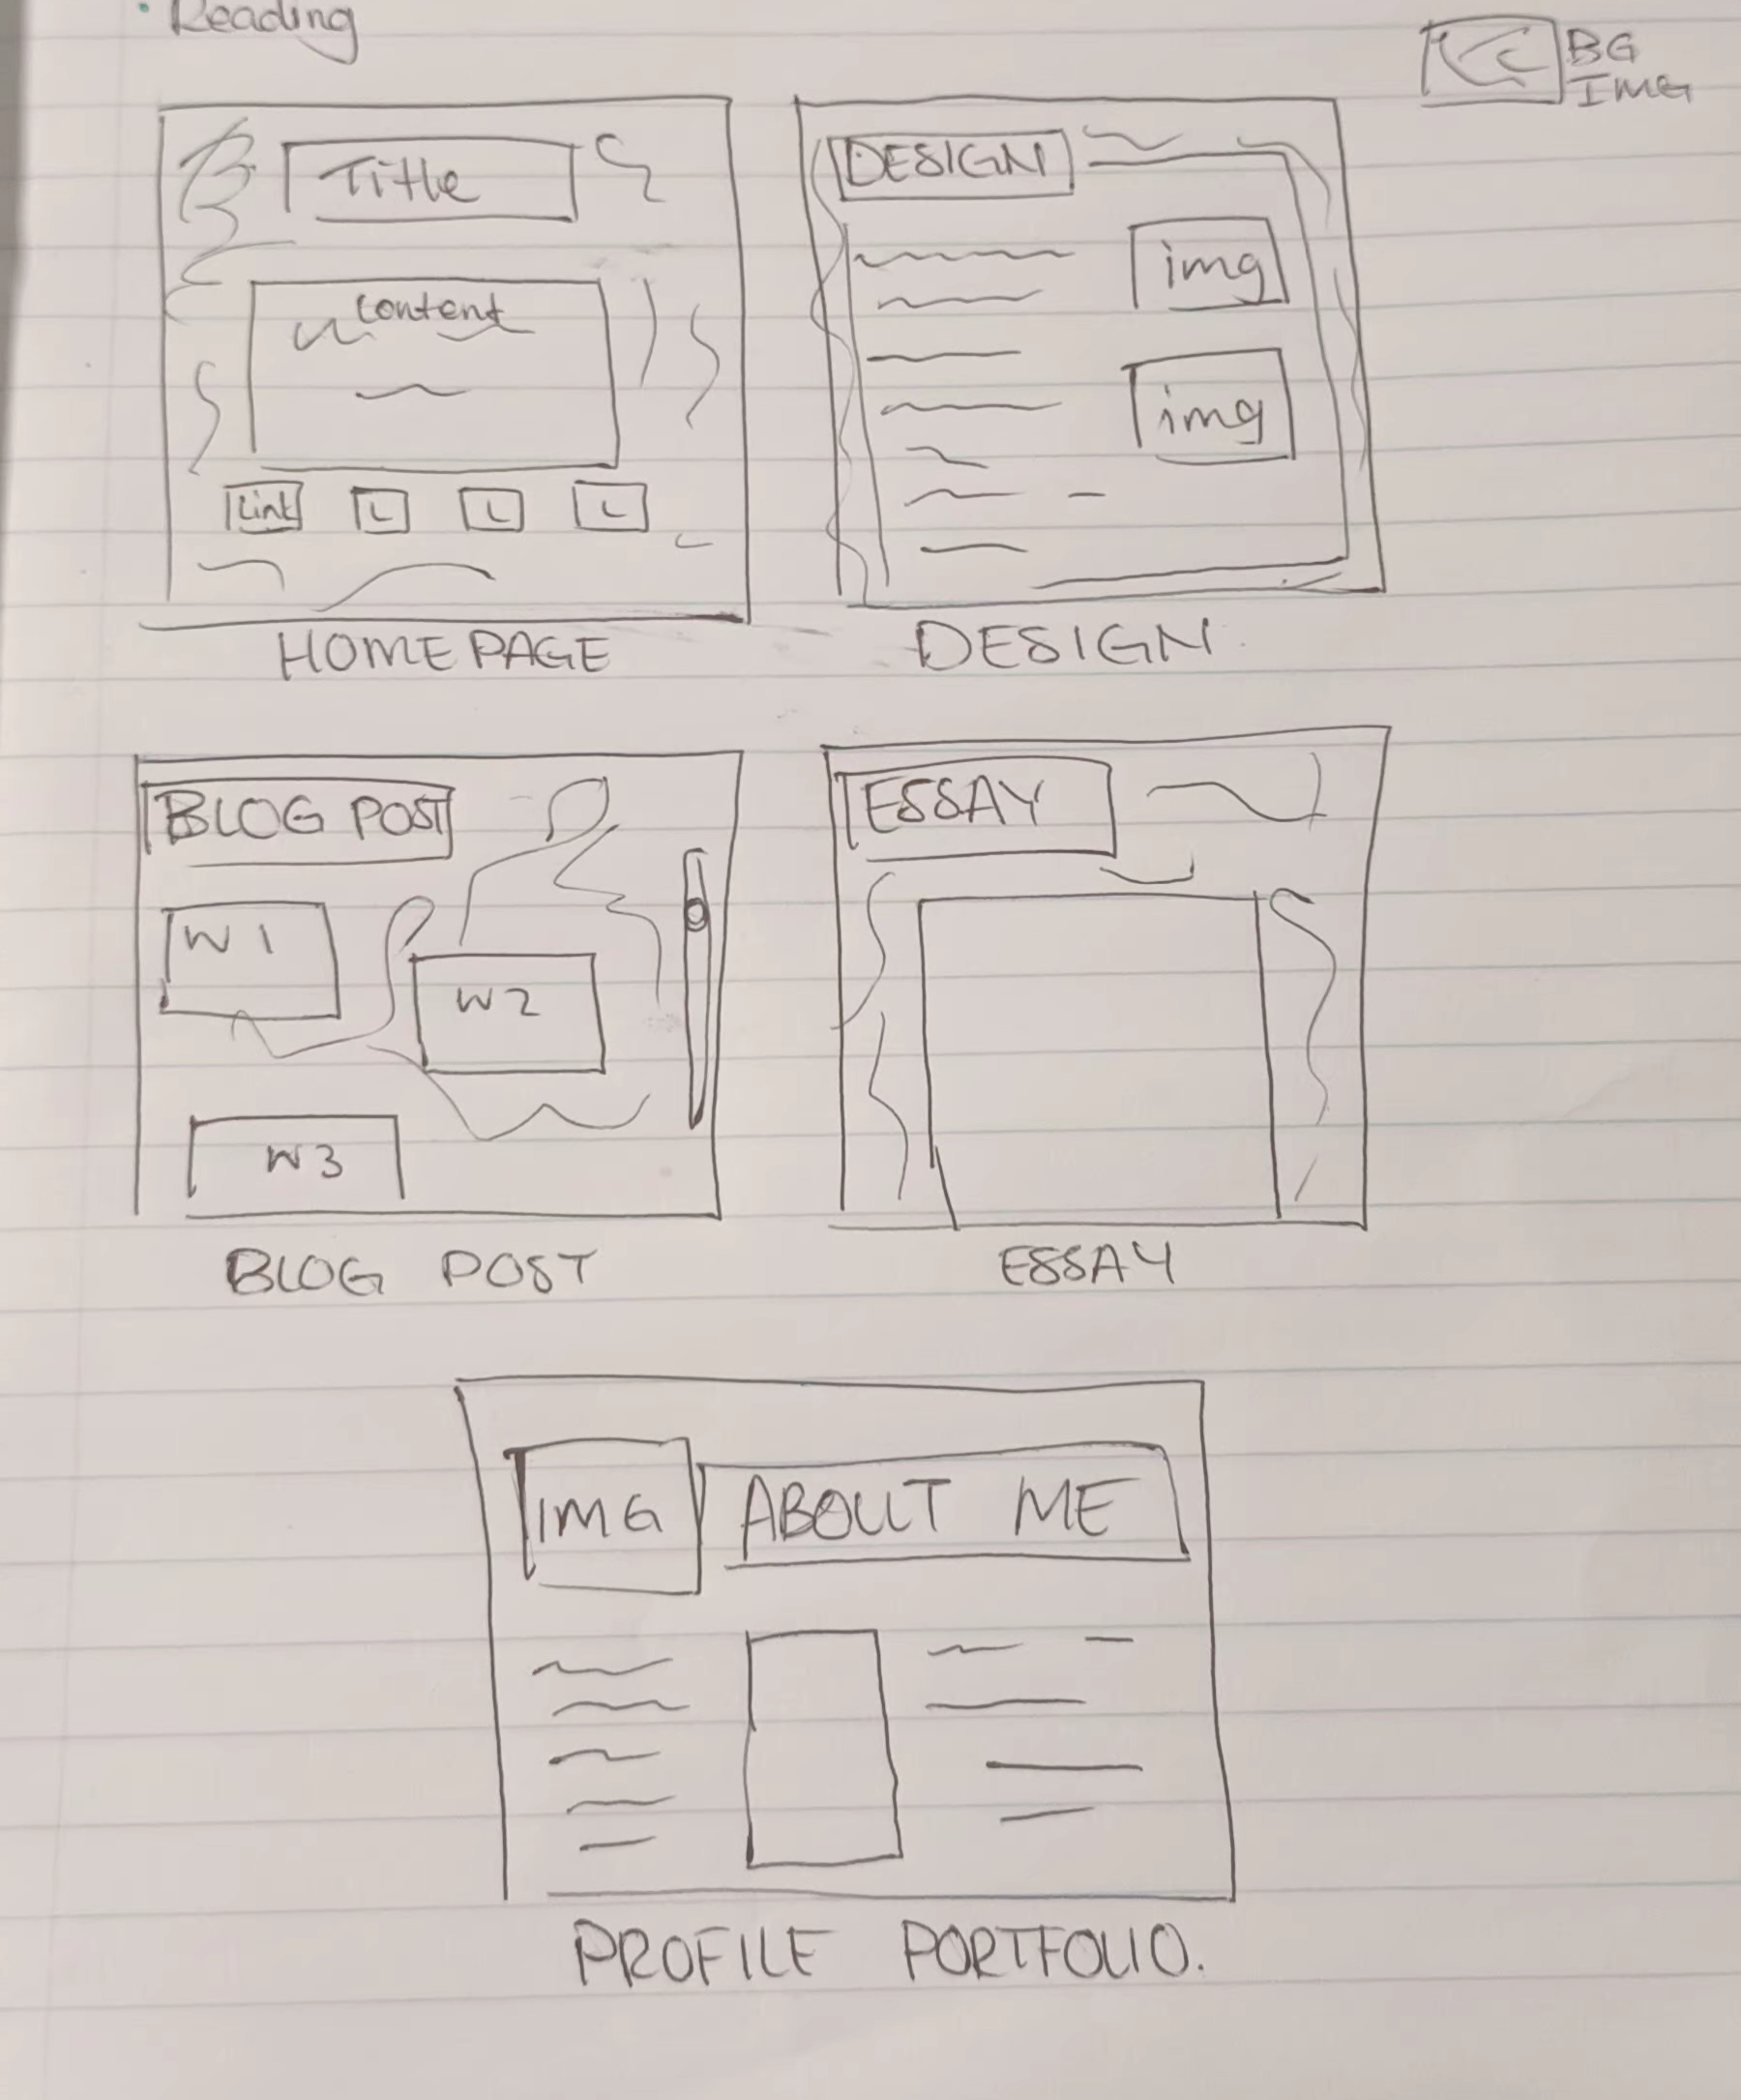 Reading
BG
IMG
Title
Content
Link L L L
HOMEPAGE
DESIGN
img
img
DESIGN.
BLOG POST
W1
W2
W3
BLOG POST
ESSAY
ESSAY
IMG ABOUT ME
PROFILE PORTFOLIO.